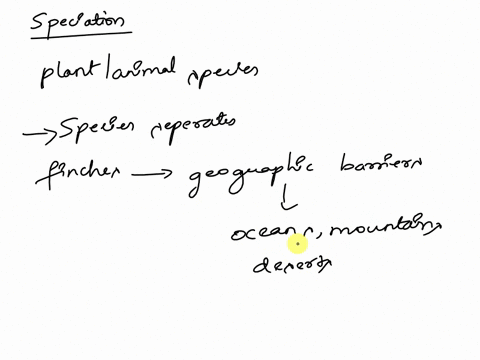 Speciation
plant/animal species
→ Species seperates
finches → geographic barriers
↓
oceans, mountains
deserts